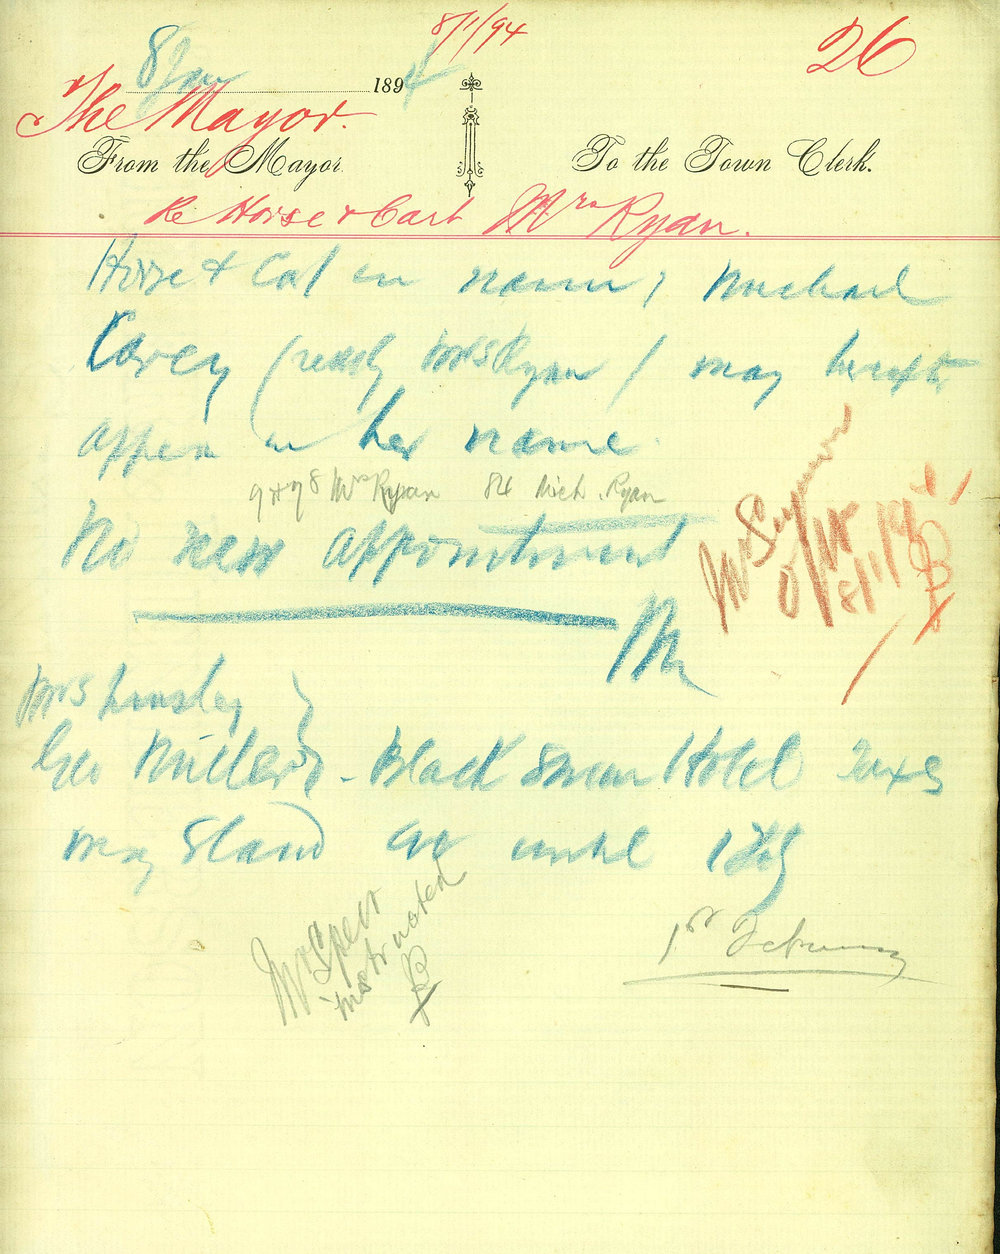 8/1/94
26
8 Jan 1894
The Mayor.
From the Mayor
To the Town Clerk.
Re Horse & Cart Mrs Ryan.
Horse & Cart in name / Michael
Carey (really Mrs Ryan) may
appear in her name
9 & 78 Mrs Ryan 84 Mich. Ryan
No new appointment
Mr
8/1/94
Mrs
Geo Millers - Black Swan Hotel Taxes
may stand over until 1st
1st February
Mr Speer
instructed